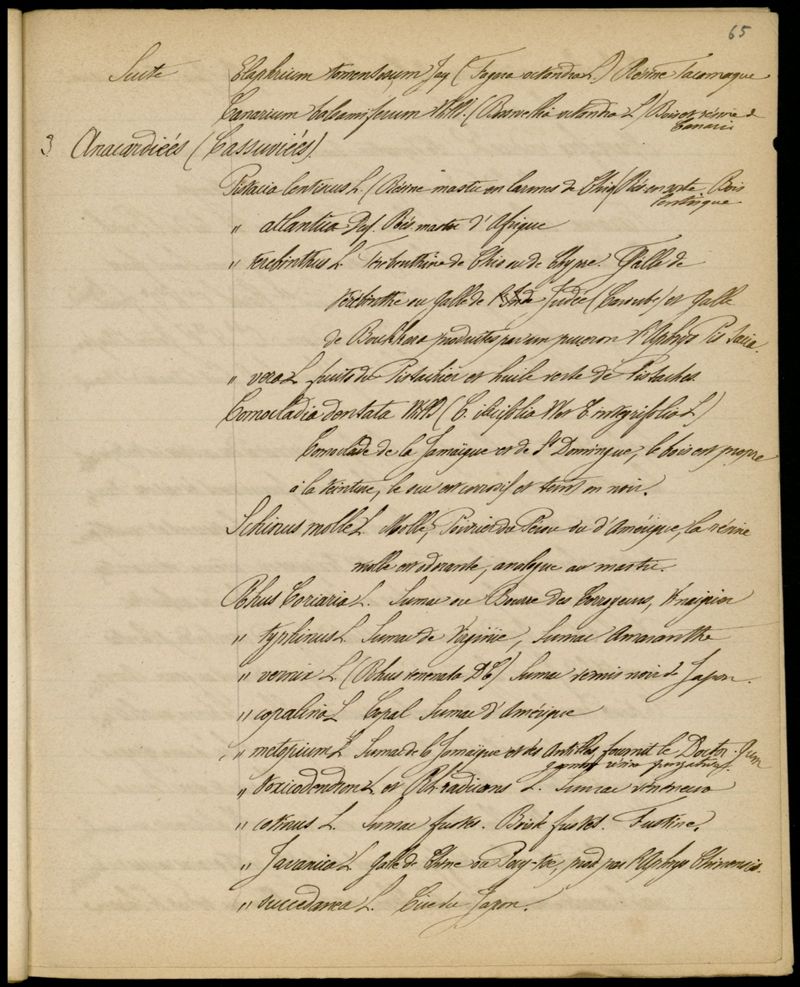 65
Suite Elaphrium tomentosum Jaq (Fagara octandra L.) Résine Tacamaque
Canarium balsamiferum Willd. (Boswellia octandra L.) Bois et résine de
Canari
3 Anacardiées (Cassuviées)
Pistacia Lentiscus L. (Résine mastic en larmes de Chio) Rés en sorte Bois
Lentisque
" atlantica Desf. Rés. mastic d'Afrique
" terebinthus L. Térébenthine de Chio ou de Chypre. Galle de
térébinthe ou galle de Judée (Caroub) et galle
de Boukhara produites par un puceron l'Aphys Pistacia.
" vera L. fruits du Pistachier et huile verte de Pistaches.
Comocladia dentata Willd (C. ilicifolia et C. integrifolia L)
Comoclade de la Jamaïque et de St Domingue, le bois est propre
à la teinture, le suc est corrosif et teint en noir.
Schinus molle L. Mollé, Poivrier du Pérou ou d'Amérique, la résine
molle est odorante, analogue au mastic.
Rhus Coriaria L. Sumac ou Bourre des Corroyeurs, Vinaigrier
" typhinus L. Sumac de Virginie, Sumac Amaranthe
" vernix L (Rhus venenata DC) Sumac vernis noir du Japon.
" copalina L. Copal Sumac d'Amérique
" metopium L. Sumac de la Jamaïque et des Antilles fournit le Doctor Gum
gomme résine purgative.
" toxicodendron L. et Rh radicans L. Sumac vénéneux
" cotinus L. Sumac fustet. Bois de fustet. Fustine.
" Javanica L. galle de Chine ou Pouy-tse, prod par l'Aphys Chinensis.
" succedanea L. Cire du Japon.